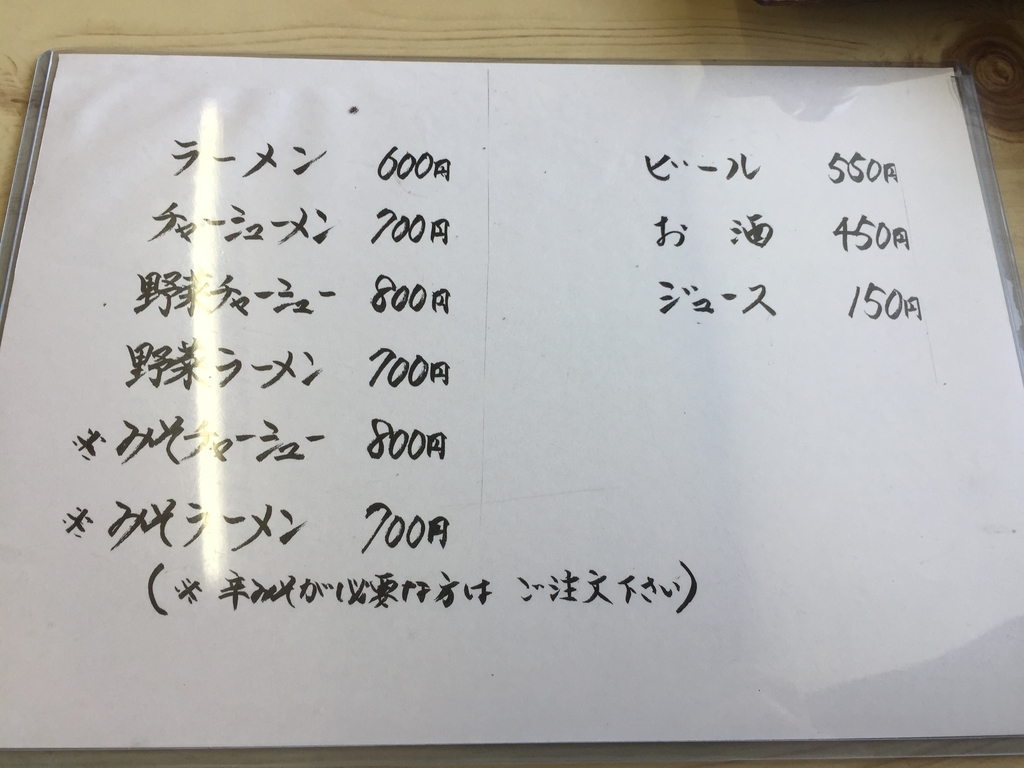 ラーメン 600円
チャーシューメン 700円
野菜チャーシュー 800円
野菜ラーメン 700円
※みそチャーシュー 800円
※みそラーメン 700円
(※辛みそが必要な方は ご注文下さい)
ビール 550円
お酒 450円
ジュース 150円